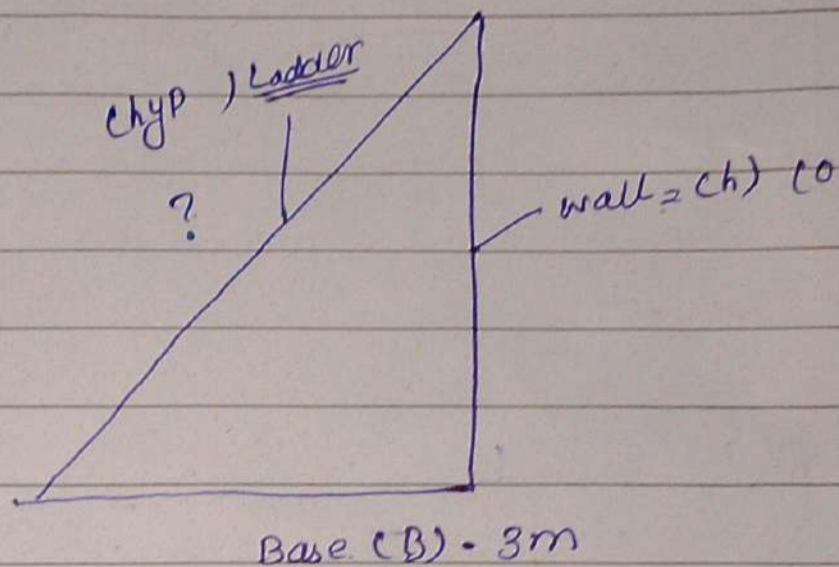 (hyp) Ladder
?
wall = (h) (0
Base (B) - 3m